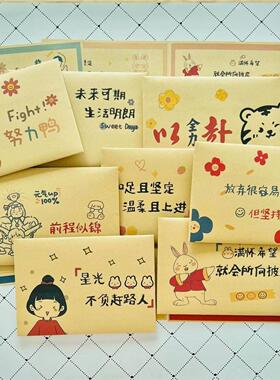 满怀希望
就会所向披
Fight!
努力鸭
未来可期
生活明朗
Sweet Days
以
全力
赴
元气up
100%
前程似锦
足且坚定
温柔且上进
放弃很容易
但坚持
「星光
不负赶路人」
满怀希望
就会所向披